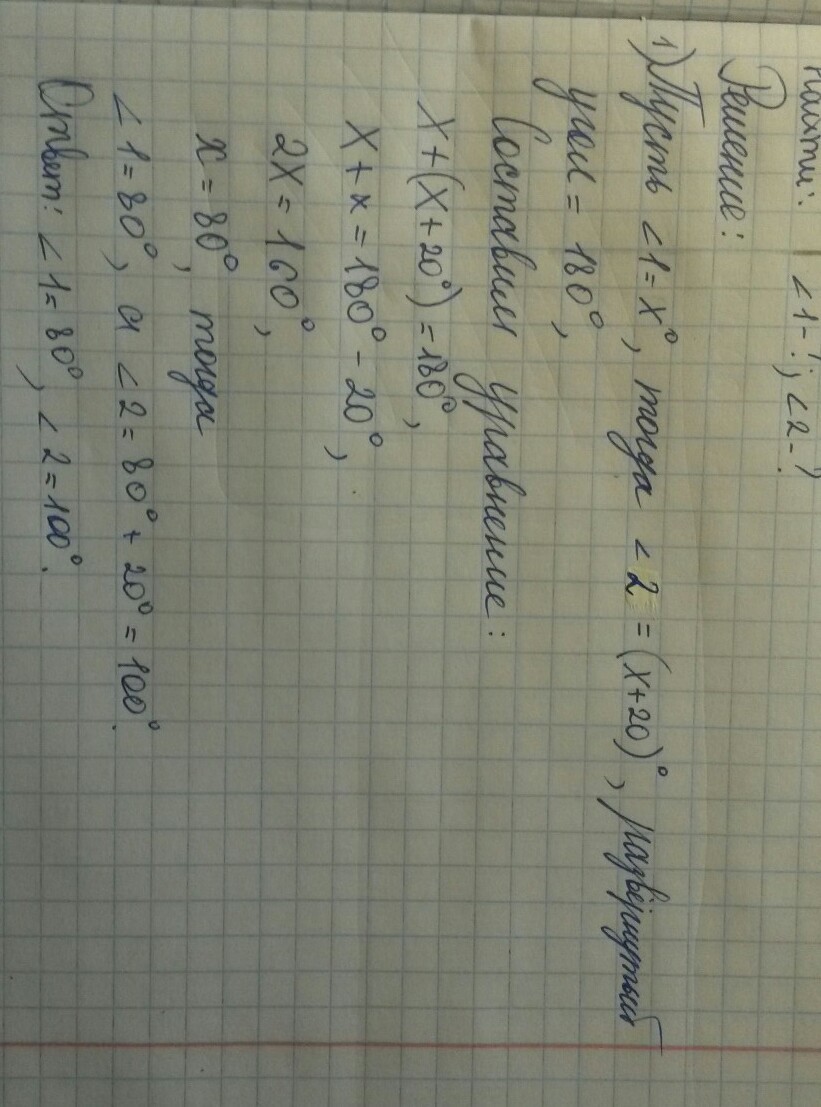 Найти: <1-?; <2-?
Решение:
1) Пусть <1=x°, тогда <2 = (x+20)°, развёрнутый
угол = 180°,
Составим уравнение:
x+(x+20°)=180°,
x+x=180°-20°,
2x=160°,
x=80°, тогда
<1=80°, а <2=80°+20°=100°.
Ответ: <1=80°, <2=100°.